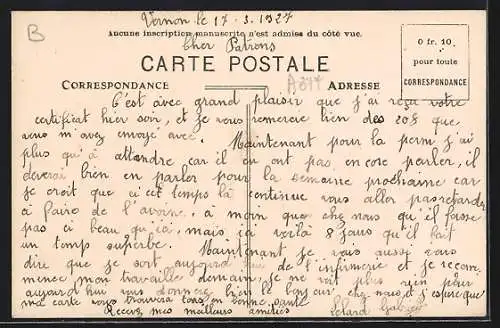 B
Vernon le 17.3.1927
Aucune inscription manuscrite n'est admise du côté vue.
Cher Patrons
CARTE POSTALE
A844
CORRESPONDANCE
ADRESSE
0 fr. 10
pour toute
CORRESPONDANCE
C'est avec grand plaisir que j'ai reçu votre
certificat hier soir, et je vous remercie bien des 20f que
vous m'avez envoyé avec. Maintenant pour la perm j'ai
plus qu'à attendre car il en ont pas encore parler, il
deverai bien en parler pour la semaine prochaine car
je croit que si cet temps là continue vous aller pas retarder
à faire de l'avoine, à moin que chez nous qu'il fasse
pas si beau qu'çà, mais çi voilà 8 jours qu'il fait
un temps superbe. Maintenant je vais aussi vous
dire que je sort aujourd'hui de l'infirmerie et je recom-
mence mon travaille demain, je ne voit plus rien pour
aujourd'hui vous donnerez bien le bonjour chez nous et j'espère que
ma carte vous trouvera tous en bonne santé
Recevez mes meilleurs amitiés